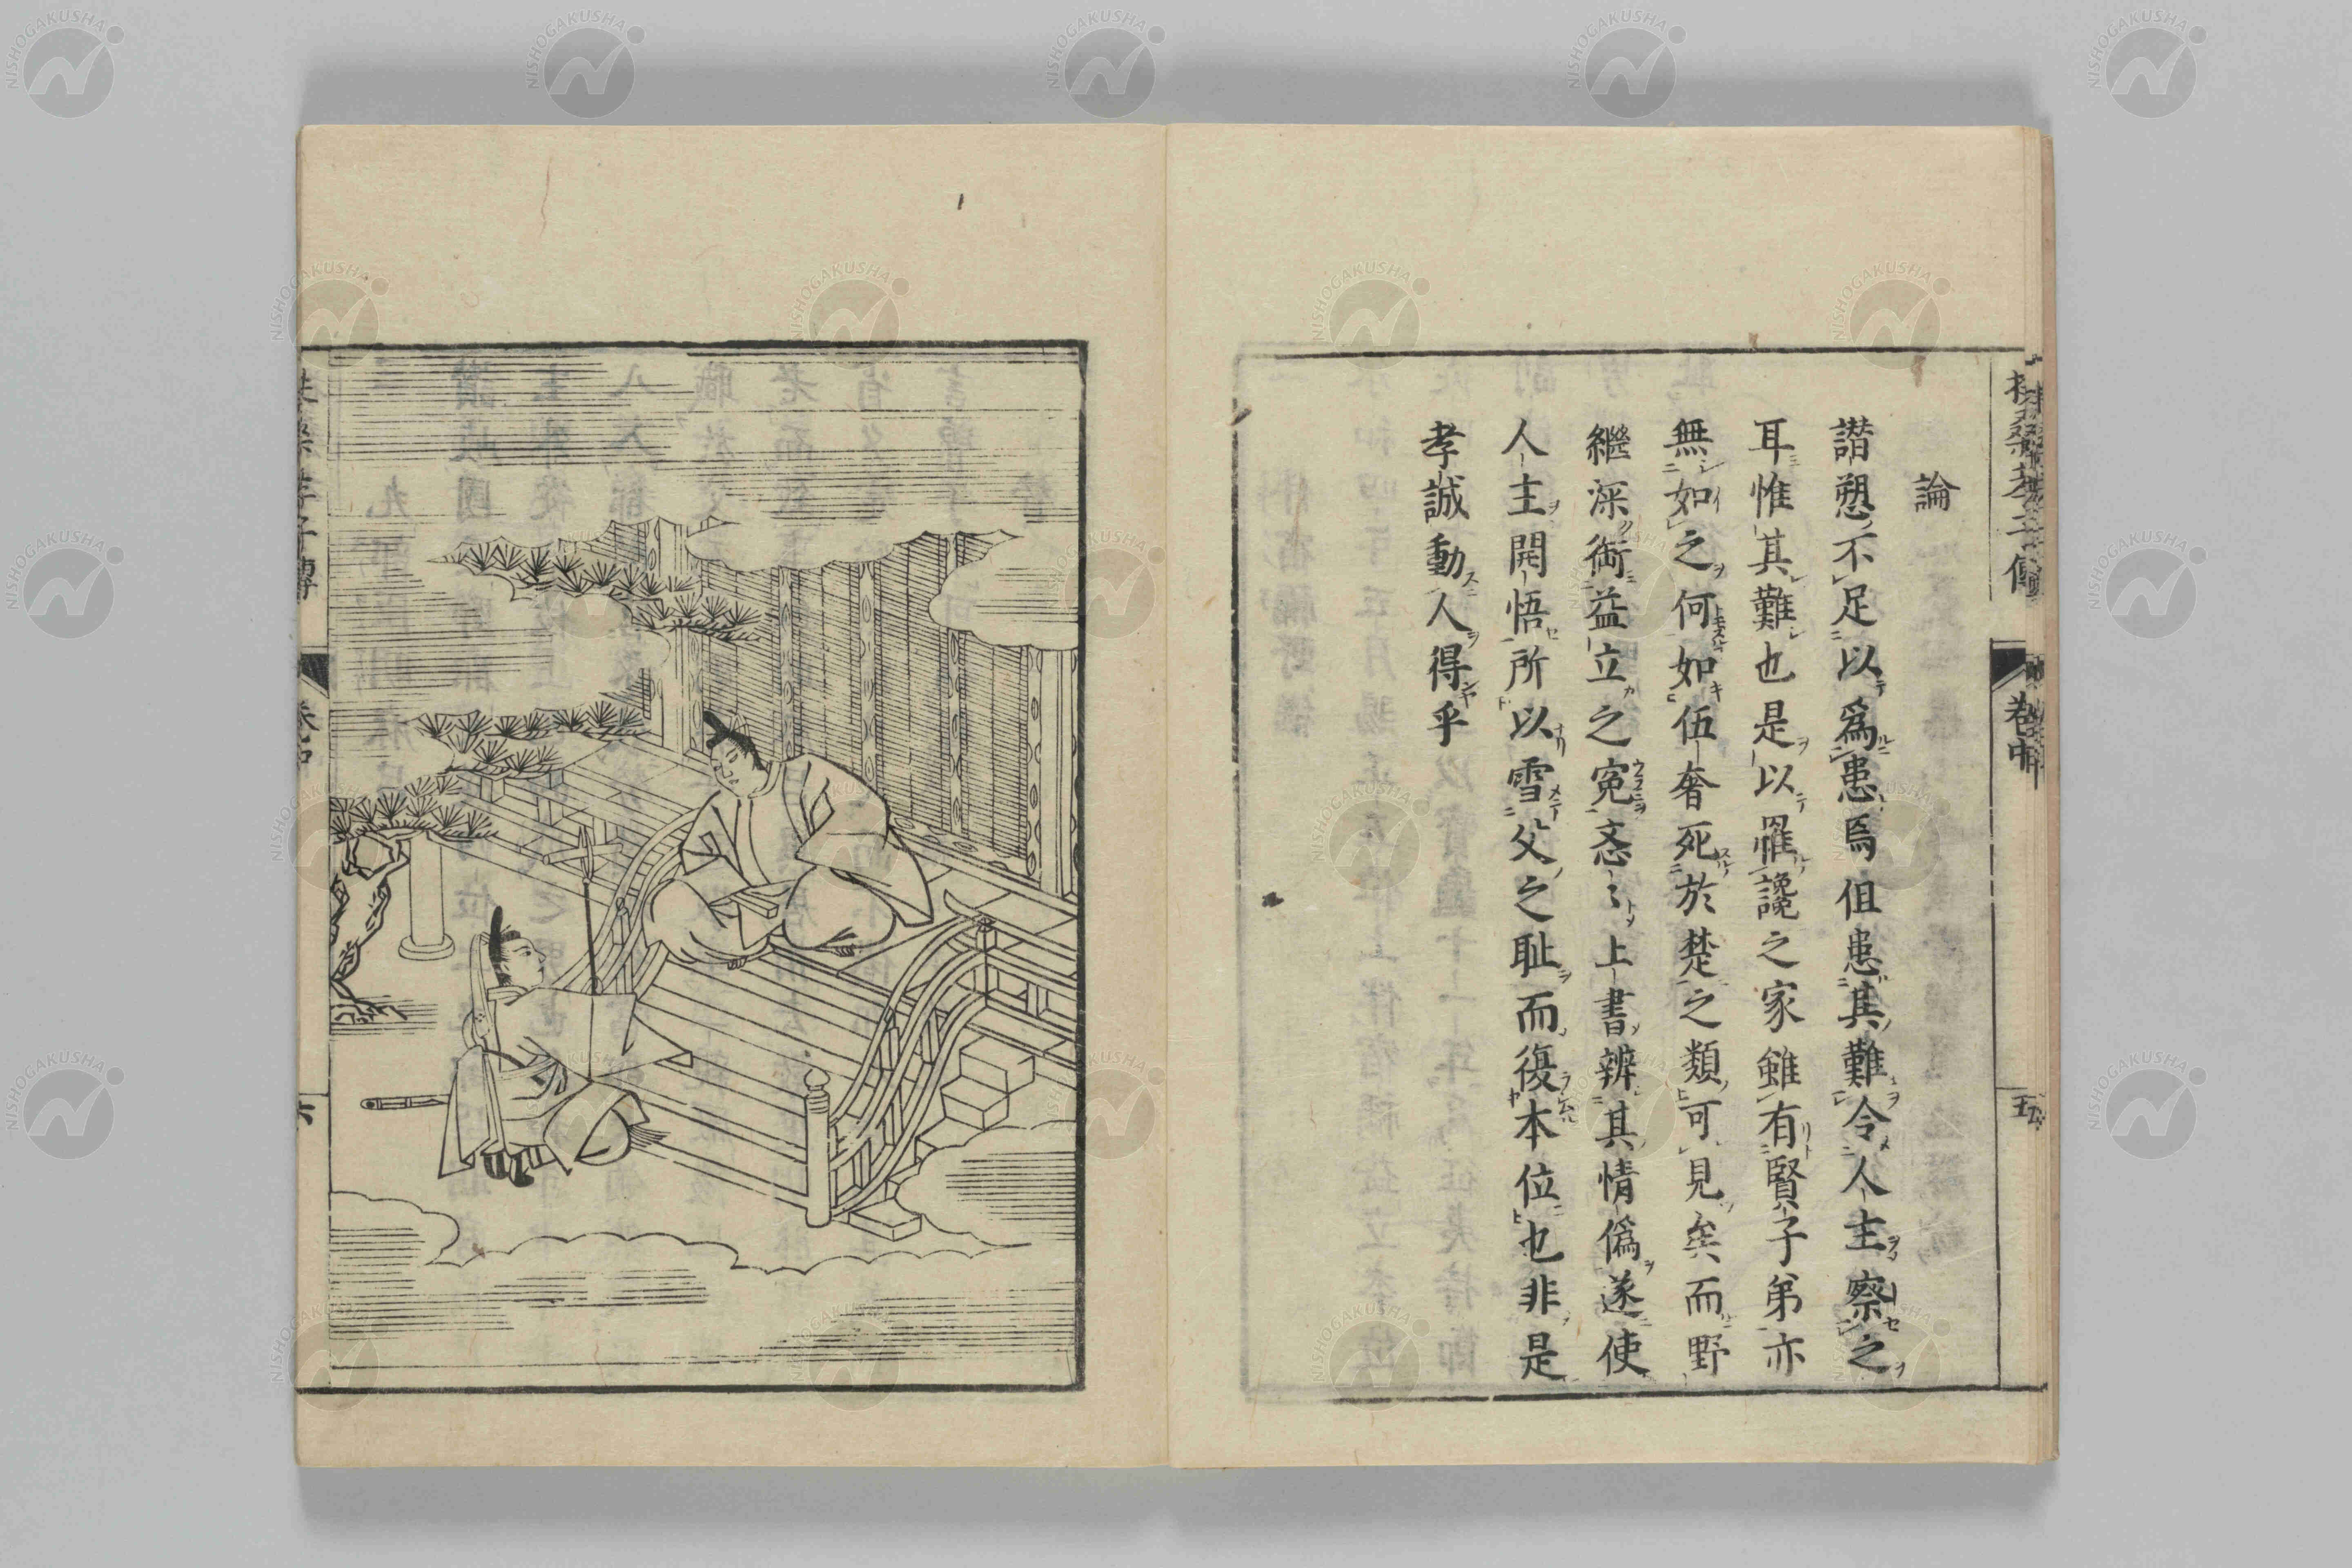 扶桑孝子傳
卷中
五
論
譖愬不足以爲患焉但患其難令人主察之
耳惟其難也是以罹讒之家雖有賢子弟亦
無如之何如伍奢死於楚之類可見矣而野
繼深銜益立之寃忞〻上書辨其情僞遂使
人主開悟所以雪父之耻而復本位也非是
孝誠動人得乎
NISHOGAKUSHA